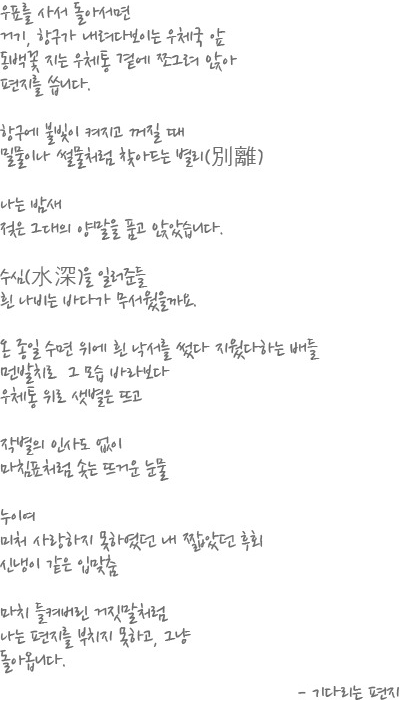 우표를 사서 돌아서면
거기, 항구가 내려다보이는 우체국 앞
동백꽃 지는 우체통 곁에 쪼그려 앉아
편지를 씁니다.
항구에 불빛이 켜지고 꺼질 때
밀물이나 썰물처럼 찾아드는 별리(別離)
나는 밤새
젖은 그대의 양말을 품고 앉았습니다.
수심(水深)을 일러준들
흰 나비는 바다가 무서웠을까요.
온 종일 수면 위에 흰 낙서를 썼다 지웠다하는 배들
먼발치로 그 모습 바라보다
우체통 위로 샛별은 뜨고
작별의 인사도 없이
마침표처럼 솟는 뜨거운 눈물
누이여
미처 사랑하지 못하였던 내 짧았던 후회
신냉이 같은 입맞춤
마치 들켜버린 거짓말처럼
나는 편지를 부치지 못하고, 그냥
돌아옵니다.
- 기다리는 편지